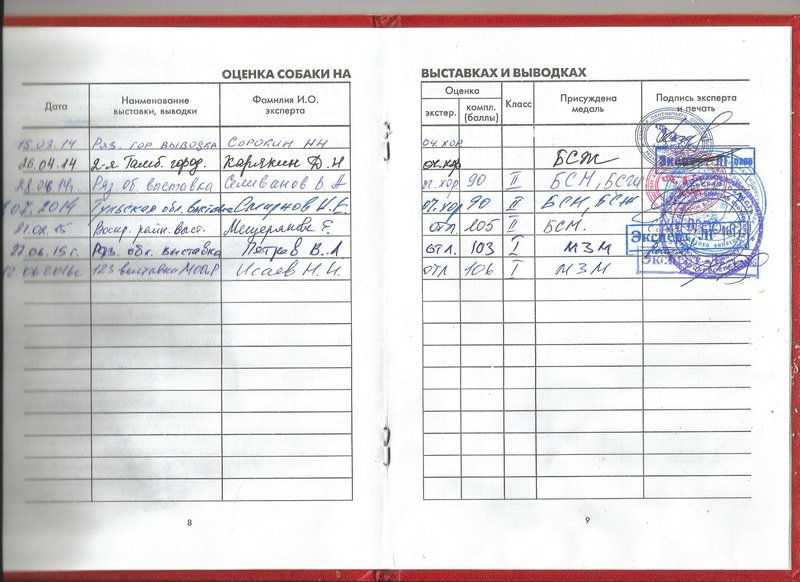 ОЦЕНКА СОБАКИ НА ВЫСТАВКАХ И ВЫВОДКАХ
Дата Наименование выставки, выводки Фамилия И.О. эксперта Оценка экстер. компл. (баллы) Класс Присуждена медаль Подпись эксперта и печать
15.03.14 Раз. гор выводка Сорокин НН оч. хор
26.04.14 2-я Тамб. город. Карякин Д.Н оч.хор БСЖ
Ряз об. выставка Селиванов В.А от.хор 90 II БСМ,
07.2014 Тульская обл. выставка 90 II БСМ, БСЖ
21.02.15 Воскр. район. выст. Мещеряков Е. отл 105 II БСМ.
27.06.15г. Ряз. обл. выставка Петров В.А отл. 103 I МЗМ
06 2016г. 123 выставка МООиР Исаев Н.И. отл 106 I МЗМ
8
9